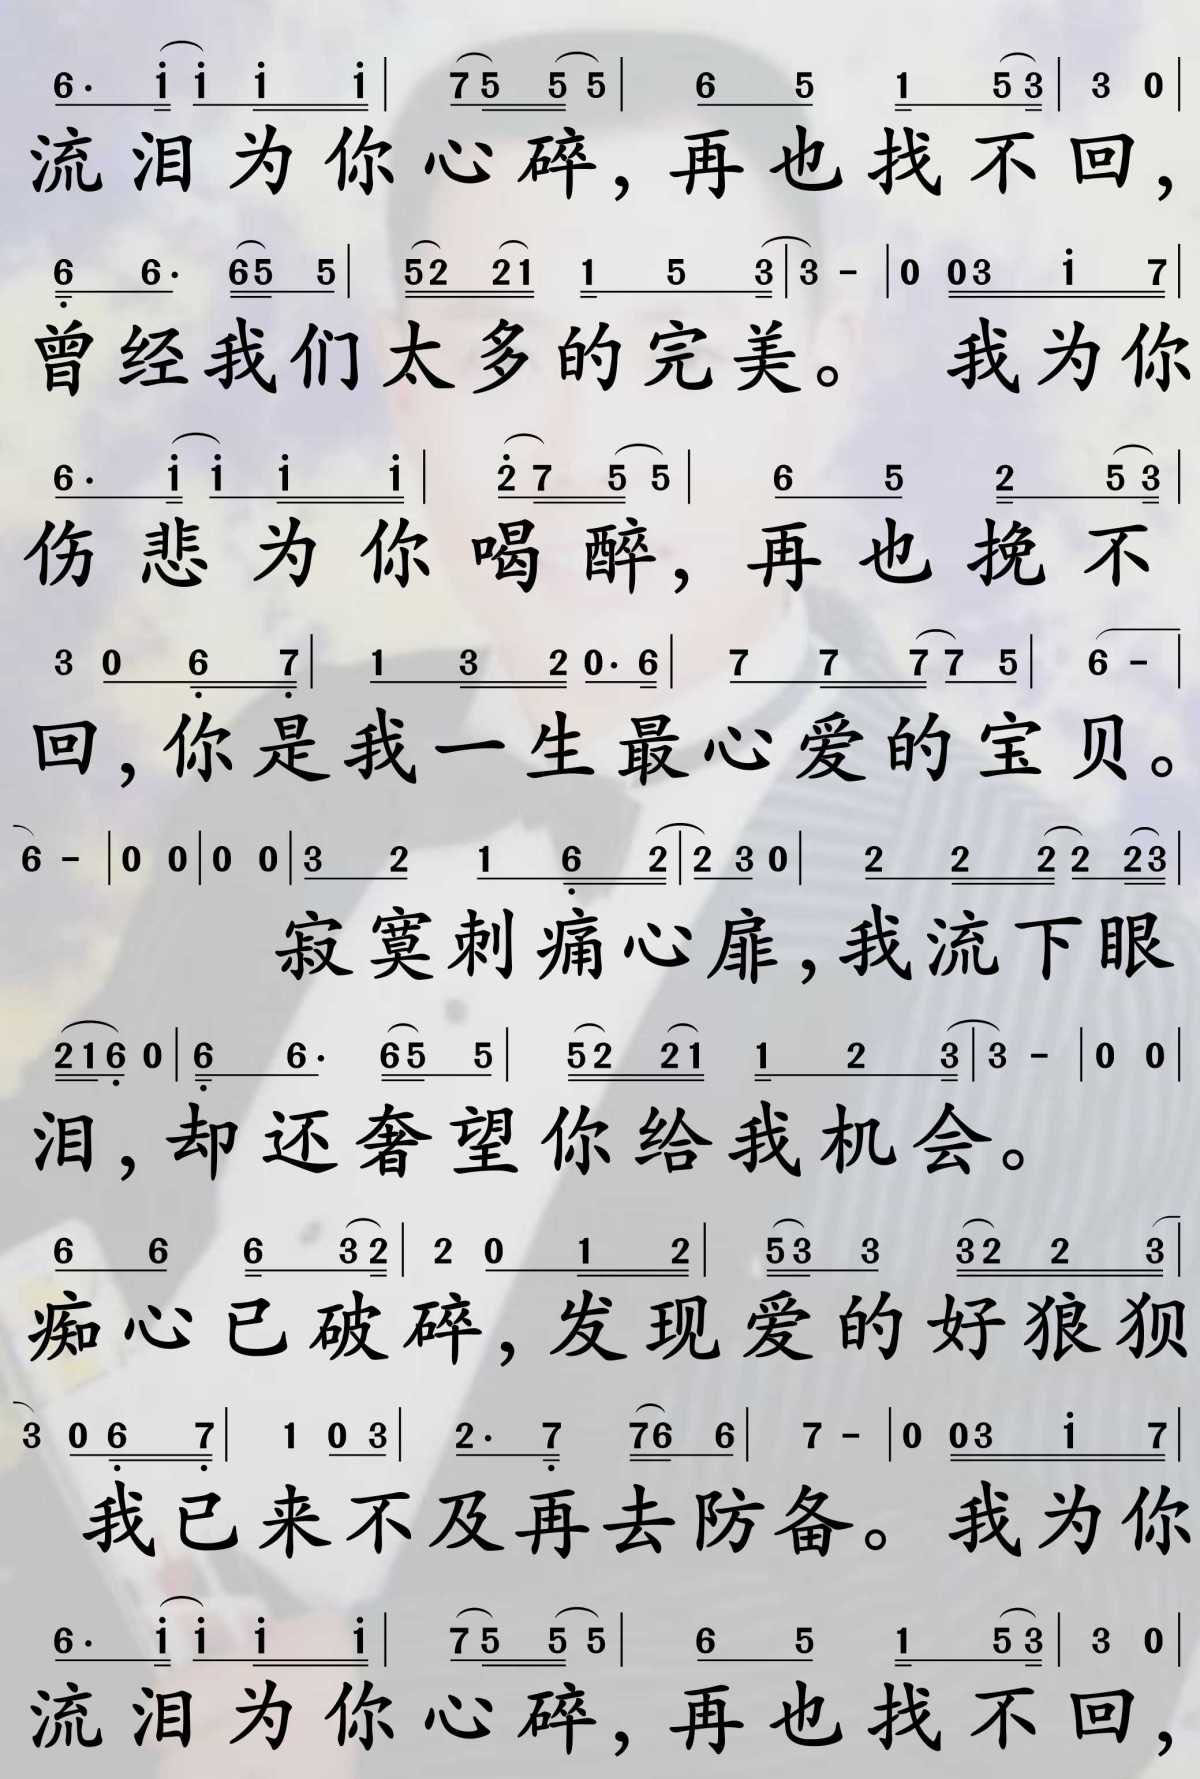 6· i i i i | 7 5 5 5 | 6 5 1 5 3 | 3 0 |
流泪为你心碎,再也找不回,
6 6· 6 5 5 | 5 2 2 1 1 5 3 | 3 - | 0 0 3 i 7 |
曾经我们太多的完美。 我为你
6· i i i i | 2 7 5 5 | 6 5 2 5 3 |
伤悲为你喝醉,再也挽不
3 0 6 7 | 1 3 2 0· 6 | 7 7 7 7 5 | 6 - |
回,你是我一生最心爱的宝贝。
6 - | 0 0 | 0 0 | 3 2 1 6 2 | 2 3 0 | 2 2 2 2 2 3 |
寂寞刺痛心扉,我流下眼
2 1 6 0 | 6 6· 6 5 5 | 5 2 2 1 1 2 3 | 3 - | 0 0 |
泪,却还奢望你给我机会。
6 6 6 3 2 | 2 0 1 2 | 5 3 3 3 2 2 3 |
痴心已破碎,发现爱的好狼狈
3 0 6 7 | 1 0 3 | 2· 7 7 6 6 | 7 - | 0 0 3 i 7 |
我已来不及再去防备。我为你
6· i i i i | 7 5 5 5 | 6 5 1 5 3 | 3 0 |
流泪为你心碎,再也找不回,